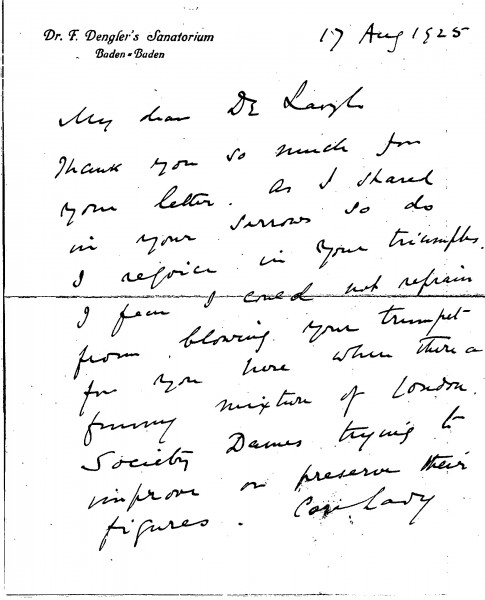 Dr. F. Dengler's Sanatorium
Baden=Baden
17 Aug 1925
My dear De
Thank you so much for
your letter. As I shared
in your sorrows so do
I rejoice in your triumphs.
I fear I could not refrain
from blowing your trumpet
for you here when there a
funny mixture of London
Society Dames trying to
improve or preserve their
figures. Lady